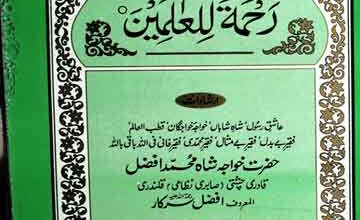 رَحْمَةً لِّلْعٰلَمِيْنَ
ارشادات
عاشقِ رسول شاہِ شاہاں خواجۂ خواجگان قطب العالم
فقیرِ بے بدل فقیرِ بے مثال فقیرِ محمدی فقیر فانی فی اللہ باقی باللہ
حضرت خواجہ شاہ محمد افضل
قادری چشتی (صابری نظامی) قلندری
المعروف افضل سرکار